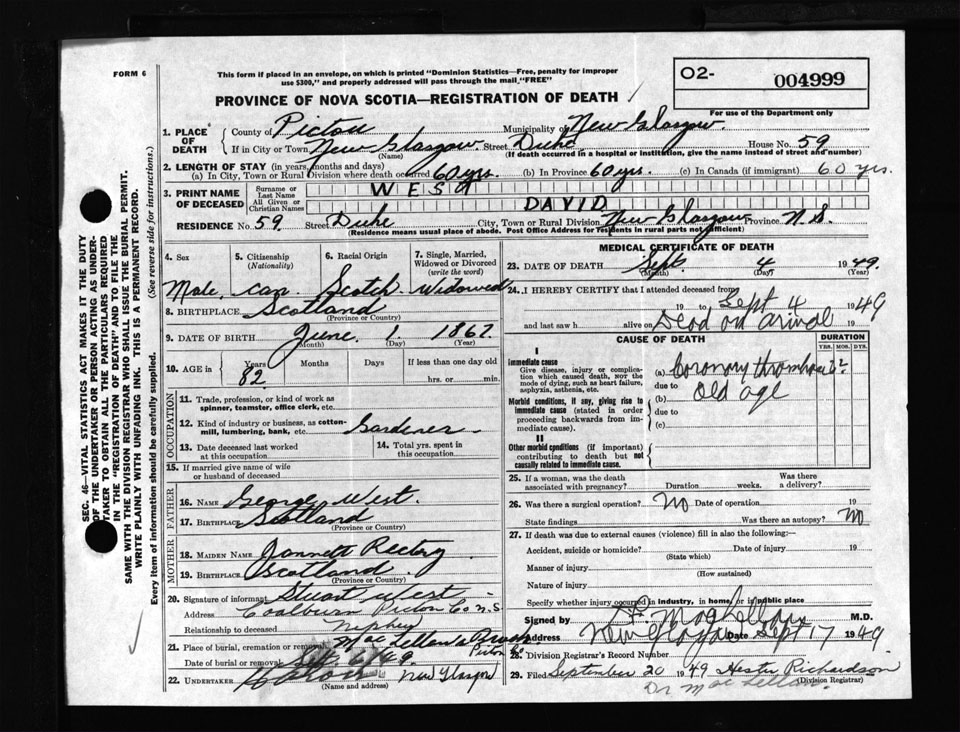 FORM 6
This form if placed in an envelope, on which is printed "Dominion Statistics—Free, penalty for improper
use $300," and properly addressed will pass through the mail, "FREE"
O2- 004999
For use of the Department only
PROVINCE OF NOVA SCOTIA—REGISTRATION OF DEATH
1. PLACE OF DEATH
County of Pictou Municipality of New Glasgow.
If in City or Town New Glasgow. Street Duke House No. 59
(Name) (If death occurred in a hospital or institution, give the name instead of street and number)
2. LENGTH OF STAY (in years, months and days)
(a) In City, Town or Rural Division where death occurred 60 yrs. (b) In Province 60 yrs. (c) In Canada (if immigrant) 60 yrs.
3. PRINT NAME OF DECEASED
Surname or Last Name WEST
All Given or Christian Names DAVID
RESIDENCE No. 59 Street Duke City, Town or Rural Division New Glasgow Province N.S.
(Residence means usual place of abode. Post Office Address for residents in rural parts not sufficient)
4. Sex
Male
5. Citizenship (Nationality)
Can.
6. Racial Origin
Scotch
7. Single, Married, Widowed or Divorced (write the word)
Widowed
8. BIRTHPLACE Scotland
(Province or Country)
9. DATE OF BIRTH June 1. 1867.
(Month) (Day) (Year)
10. AGE in Years Months Days If less than one day old
82 hrs. or min.
OCCUPATION
11. Trade, profession, or kind of work as spinner, teamster, office clerk, etc.
12. Kind of industry or business, as cotton-mill, lumbering, bank, etc. Gardener
13. Date deceased last worked at this occupation
14. Total yrs. spent in this occupation
15. If married give name of wife or husband of deceased
FATHER
16. Name George West.
17. Birthplace Scotland
(Province or Country)
MOTHER
18. MAIDEN NAME Jannett
19. Birthplace Scotland
(Province or Country)
20. Signature of informant Stuart West
Address Coalburn Pictou Co N.S
Relationship to deceased Nephew
21. Place of burial, cremation or removal MacLellan's Brook
Pictou Co
Date of burial or removal Sept. 6/49.
22. UNDERTAKER New Glasgow
(Name and address)
MEDICAL CERTIFICATE OF DEATH
23. DATE OF DEATH Sept. 4 1949.
(Month) (Day) (Year)
24. I HEREBY CERTIFY that I attended deceased from
19 to Sept 4 1949
and last saw h alive on Dead on arival 19
CAUSE OF DEATH
DURATION
YRS. MOS. DYS.
I
Immediate cause
Give disease, injury or complication which caused death, not the mode of dying, such as heart failure, asphyxia, asthenia, etc.
(a) Coronary
due to
Morbid conditions, if any, giving rise to immediate cause (stated in order proceeding backwards from immediate cause).
(b) Old age
due to
(c)
II
Other morbid conditions (if important) contributing to death but not causally related to immediate cause.
25. If a woman, was the death associated with pregnancy? Duration weeks. Was there a delivery?
26. Was there a surgical operation? No Date of operation 19
State findings Was there an autopsy? No
27. If death was due to external causes (violence) fill in also the following:
Accident, suicide or homicide? Date of injury 19
(State which)
Manner of injury
(How sustained)
Nature of injury
Specify whether injury occurred in industry, in home, or in public place
Signed by MacLellan M.D.
Address New Glasgow Date Sept 17 1949
28. Division Registrar's Record Number
29. Filed September 20 1949 Hester Richardson
(Division Registrar)
Dr MacLellan.
SEC. 46—VITAL STATISTICS ACT MAKES IT THE DUTY
OF THE UNDERTAKER OR PERSON ACTING AS UNDERTAKER TO OBTAIN ALL THE PARTICULARS REQUIRED
IN THE "REGISTRATION OF DEATH" AND TO FILE THE
SAME WITH THE DIVISION REGISTRAR WHO SHALL ISSUE THE BURIAL PERMIT.
WRITE PLAINLY WITH UNFADING INK. THIS IS A PERMANENT RECORD.
Every item of information should be carefully supplied. (See reverse side for instructions.)